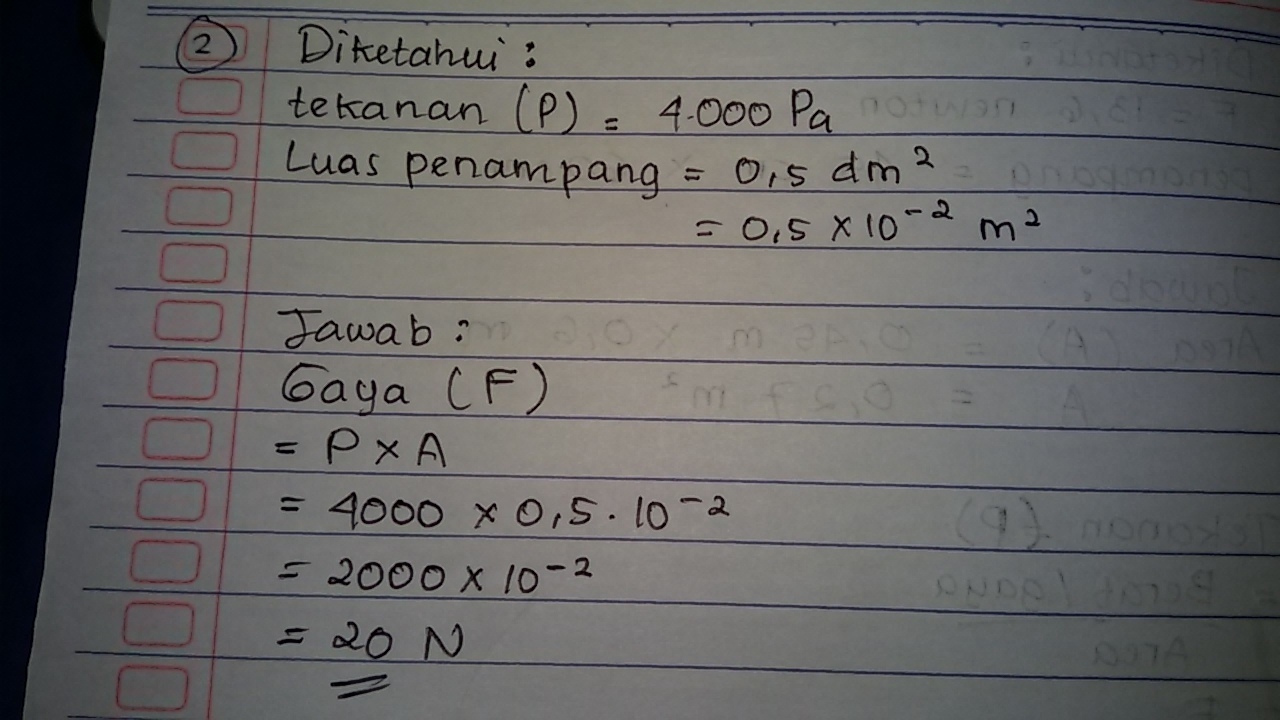 2 Diketahui :
tekanan (P) = 4.000 Pa
Luas penampang = 0,5 dm²
= 0,5 × 10⁻² m²
Jawab :
Gaya (F)
= P × A
= 4000 × 0,5 . 10⁻²
= 2000 × 10⁻²
= 20 N